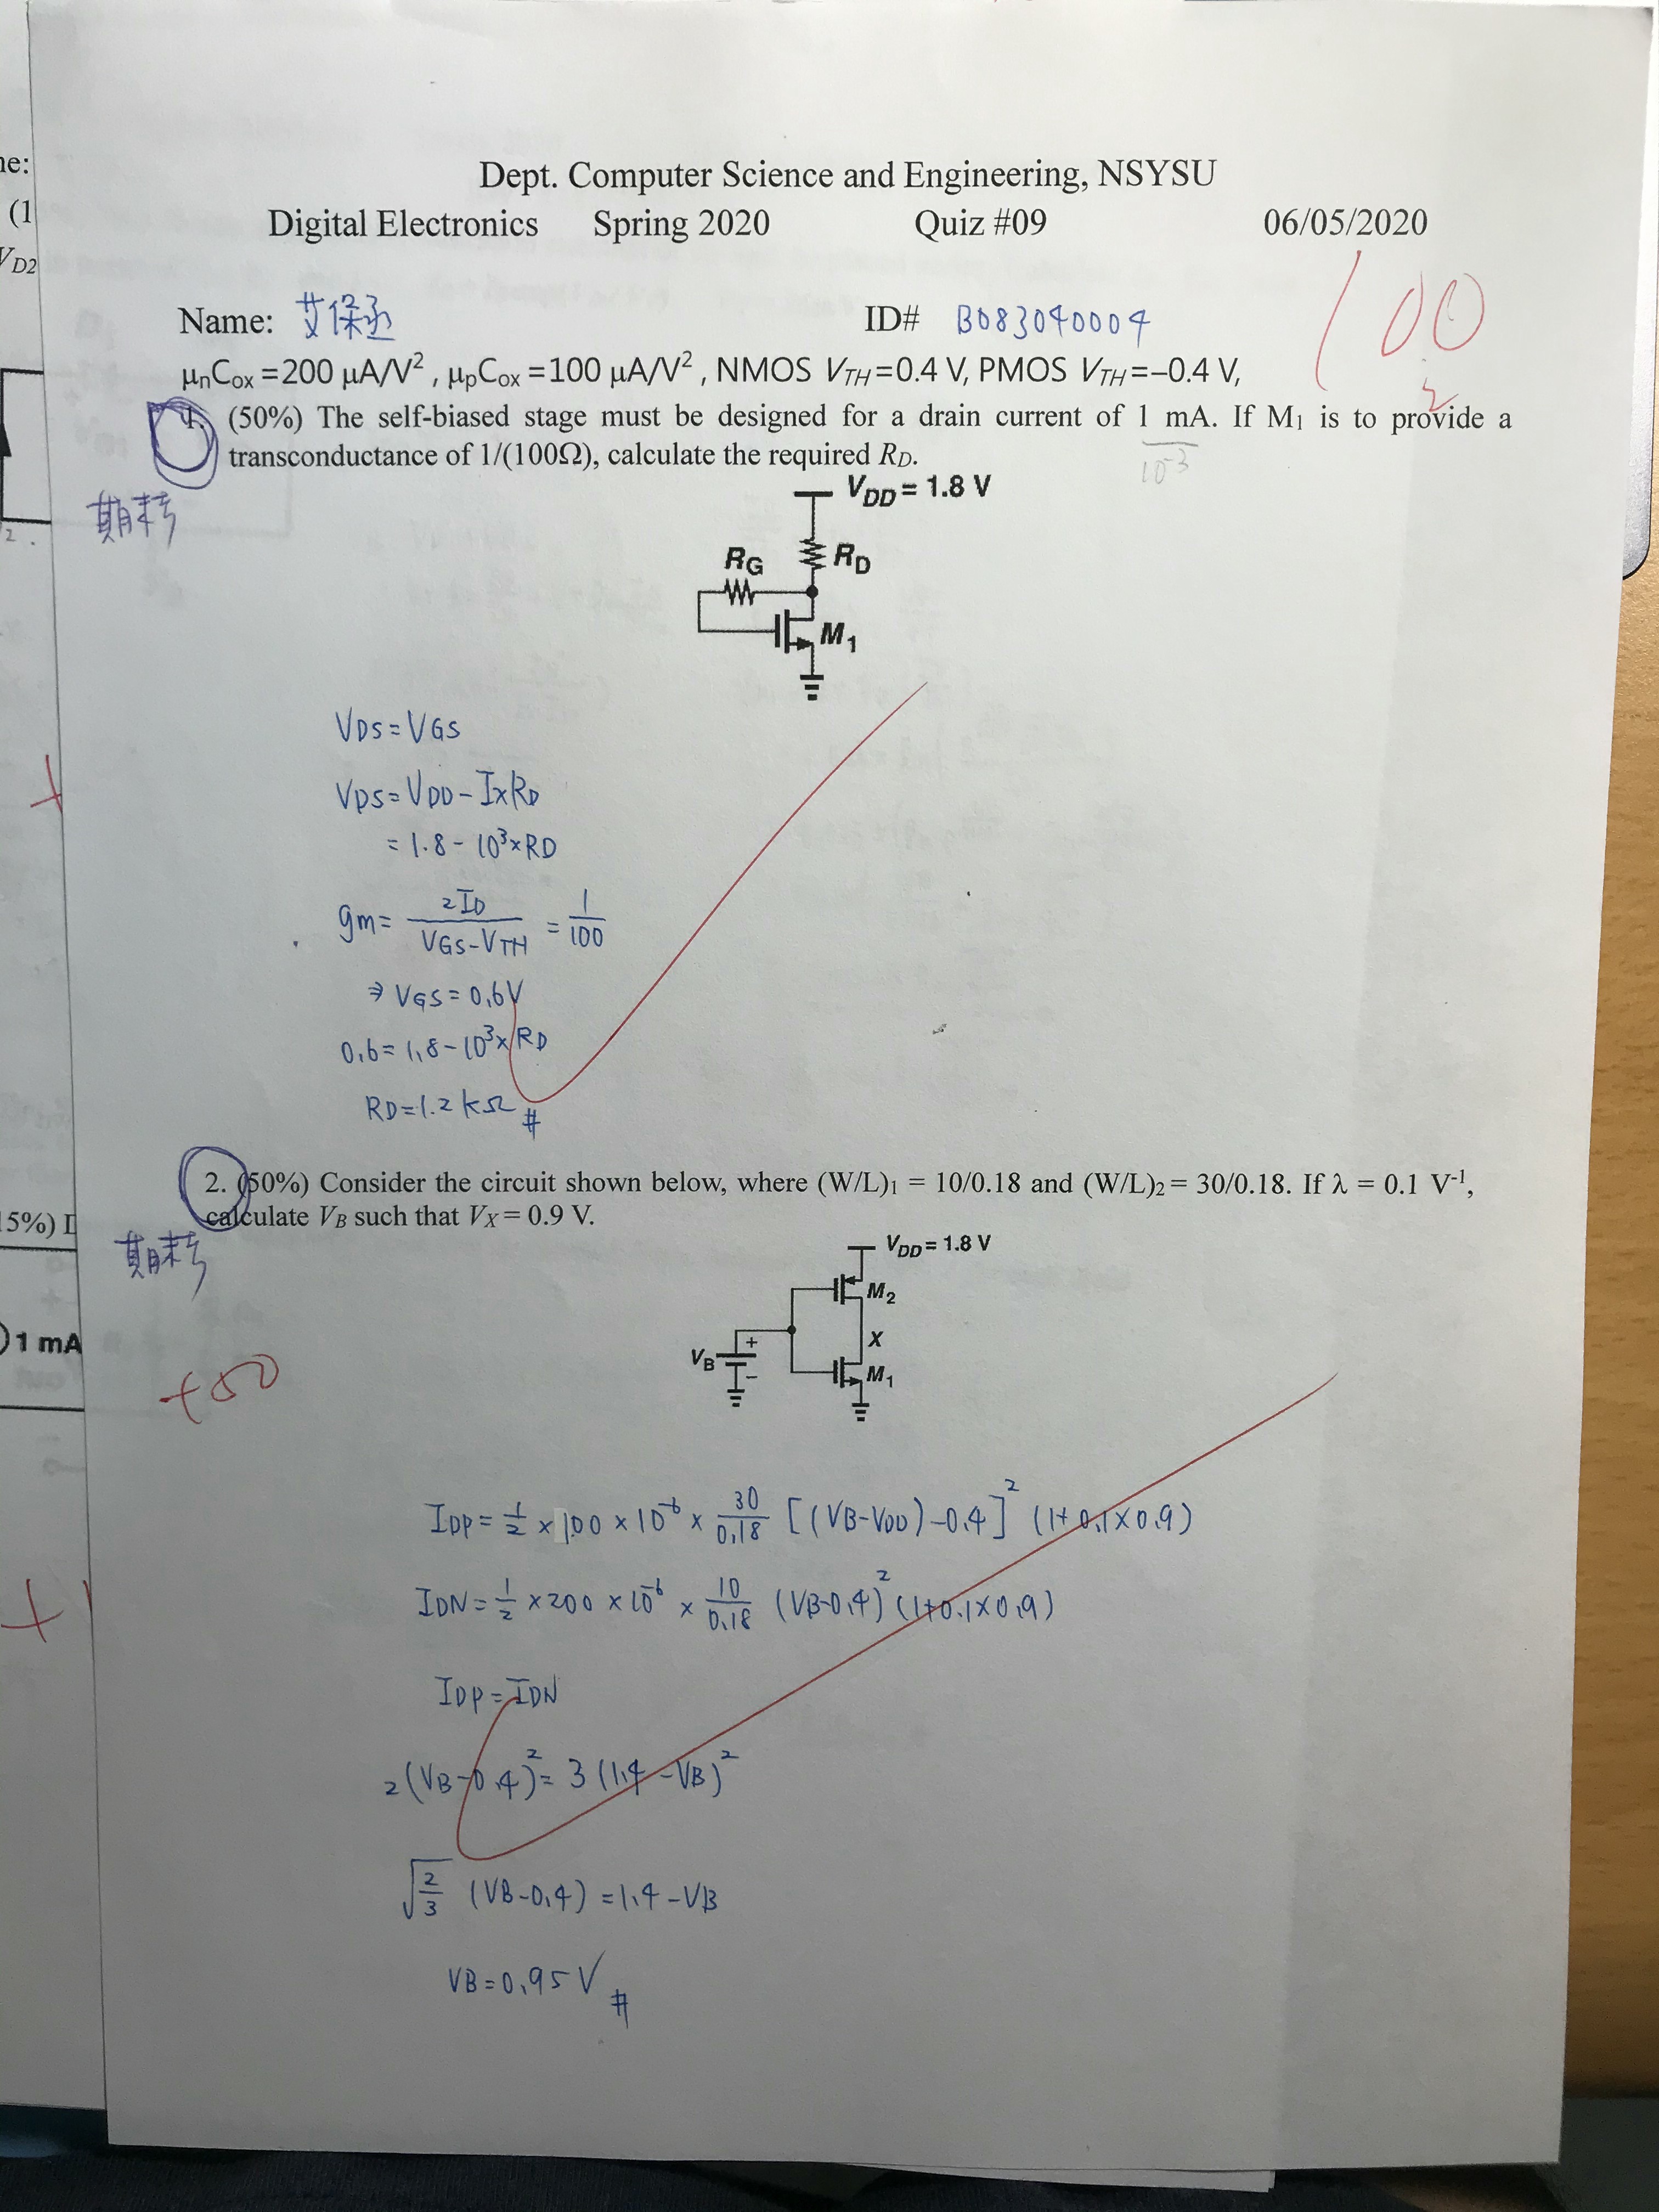 Dept. Computer Science and Engineering, NSYSU
Digital Electronics Spring 2020 Quiz #09 06/05/2020
100
Name: 艾保丞 ID# B083040004
μnCox =200 μA/V², μpCox =100 μA/V², NMOS VTH=0.4 V, PMOS VTH=−0.4 V,
1. (50%) The self-biased stage must be designed for a drain current of 1 mA. If M1 is to provide a
transconductance of 1/(100Ω), calculate the required RD.
10⁻³
期末考
VDD = 1.8 V
RG RD
M1
VDS = VGS
VDS = VDD - IxRD
= 1.8 - 10³×RD
gm = 2ID / (VGS-VTH) = 1/100
⇒ VGS = 0.6V
0.6 = 1.8 - 10³×RD
RD = 1.2 kΩ #
2. (50%) Consider the circuit shown below, where (W/L)1 = 10/0.18 and (W/L)2 = 30/0.18. If λ = 0.1 V-1,
calculate VB such that VX = 0.9 V.
期末考
VDD = 1.8 V
M2
X
VB + −
M1
+50
IDP = 1/2 × 100 × 10⁻⁶ × 30/0.18 [(VB-VDD)-0.4]² (1+0.1×0.9)
IDN = 1/2 × 200 × 10⁻⁶ × 10/0.18 (VB-0.4)² (1+0.1×0.9)
IDP = IDN
2(VB-0.4)² = 3(1.4-VB)²
√(2/3) (VB-0.4) = 1.4-VB
VB = 0.95 V #
ne:
(1
VD2
2.
5%) D
1 mA